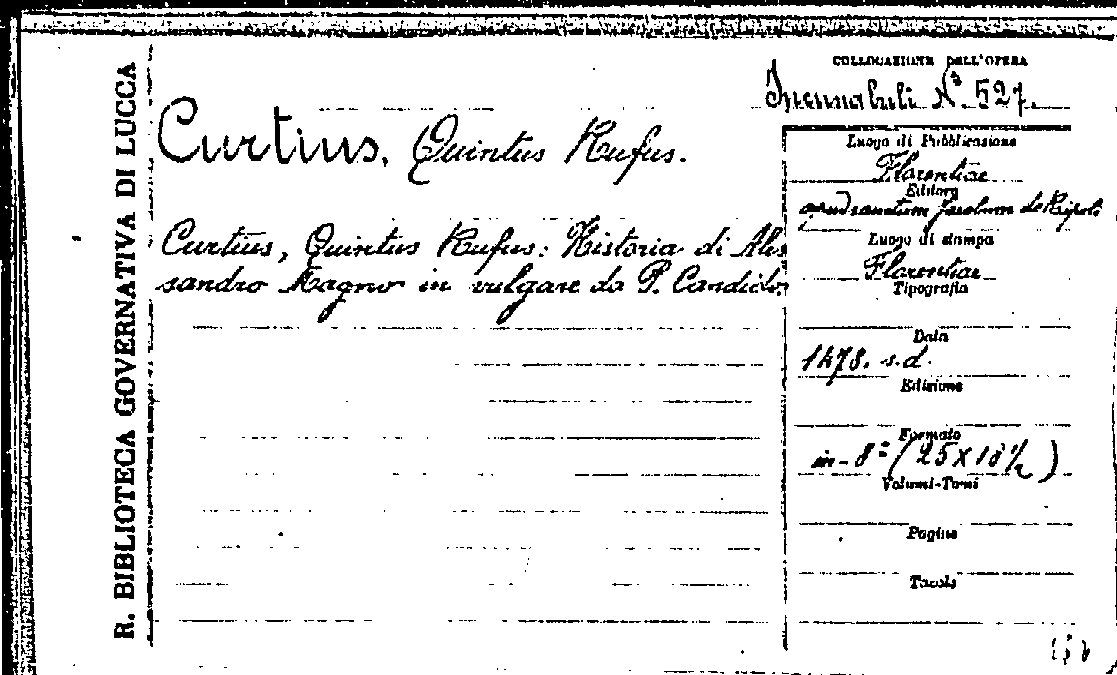 R. BIBLIOTECA GOVERNATIVA DI LUCCA
COLLOCAZIONE DELL'OPERA
Incunabuli N.° 527.
Curtius, Quintus Rufus.
Curtius, Quintus Rufus: Historia di Ales
sandro Magno in vulgare da P. Candido.
Luogo di Pubblicazione
Florentiae
Editore
apud sanctum Jacobum de Ripoli
Luogo di stampa
Florentiae
Tipografia
Data
1478. s.d.
Edizione
Formato
in-8° (25 x 18½)
Volumi-Tomi
Pagine
Tavole